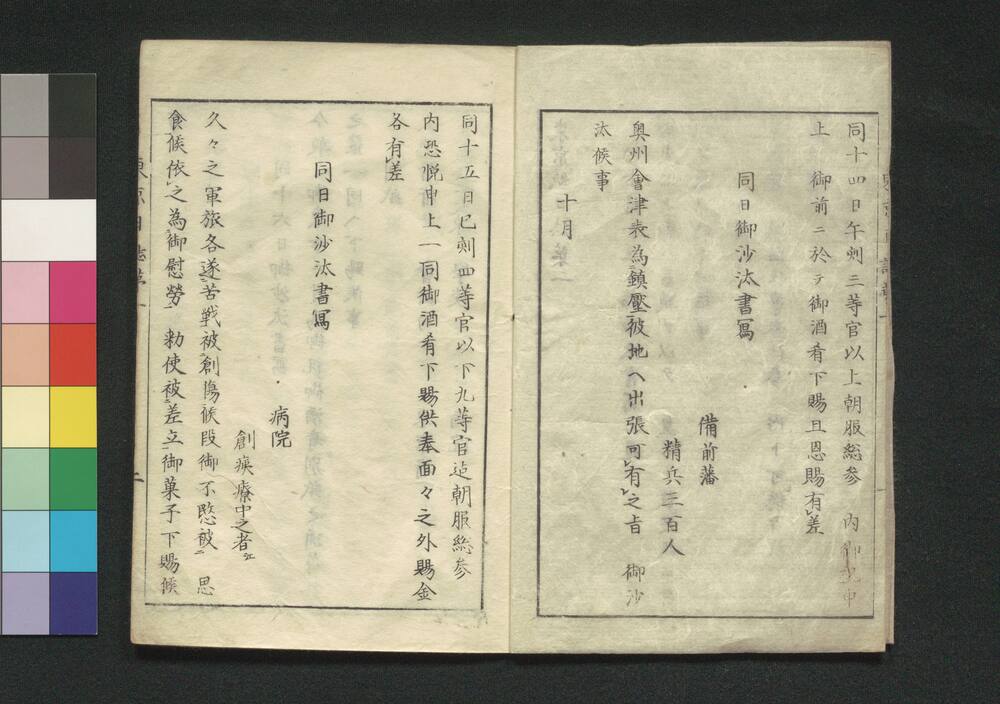 同十四日午刻三等官以上朝服総参　内
上　御前ニ於テ御酒肴下賜且恩賜有差
同日御沙汰書冩
備前藩
精兵三百人
奥州會津表為鎮壓彼地ヘ出張可有之旨　御沙
汰候事
十月
同十五日巳刻四等官以下九等官迠朝服総参
内恐悦申上一同御酒肴下賜供奉面々之外賜金
各有差
同日御沙汰書冩
病院
創痍療中之者江
久々之軍旅各遂苦戦被創傷候段御不愍被　思
食候依之為御慰勞　勅使被差立御菓子下賜候
東京日誌第一
二